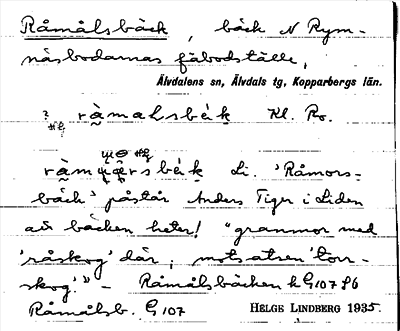 Råmålsbäck, bäck N Rym-
näsbodarnas fäbodställe,
Älvdalens sn, Älvdals tg, Kopparbergs län.
? ràmaLsbék Kl. Ro.
Hg
ràm
rsbék Li. 'Råmors-
bäck' påstår Anders Tiger i Liden
att bäcken heter! "granmor med
'råskog' där; motsatsen 'torr-
skog'." – Råmålsbäcken k G107 S6
Råmålsb. G 107
HELGE LINDBERG 1935.